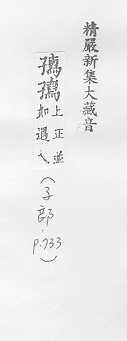 精嚴新集大藏音
上正並
如遇乂
(子部, p.733)